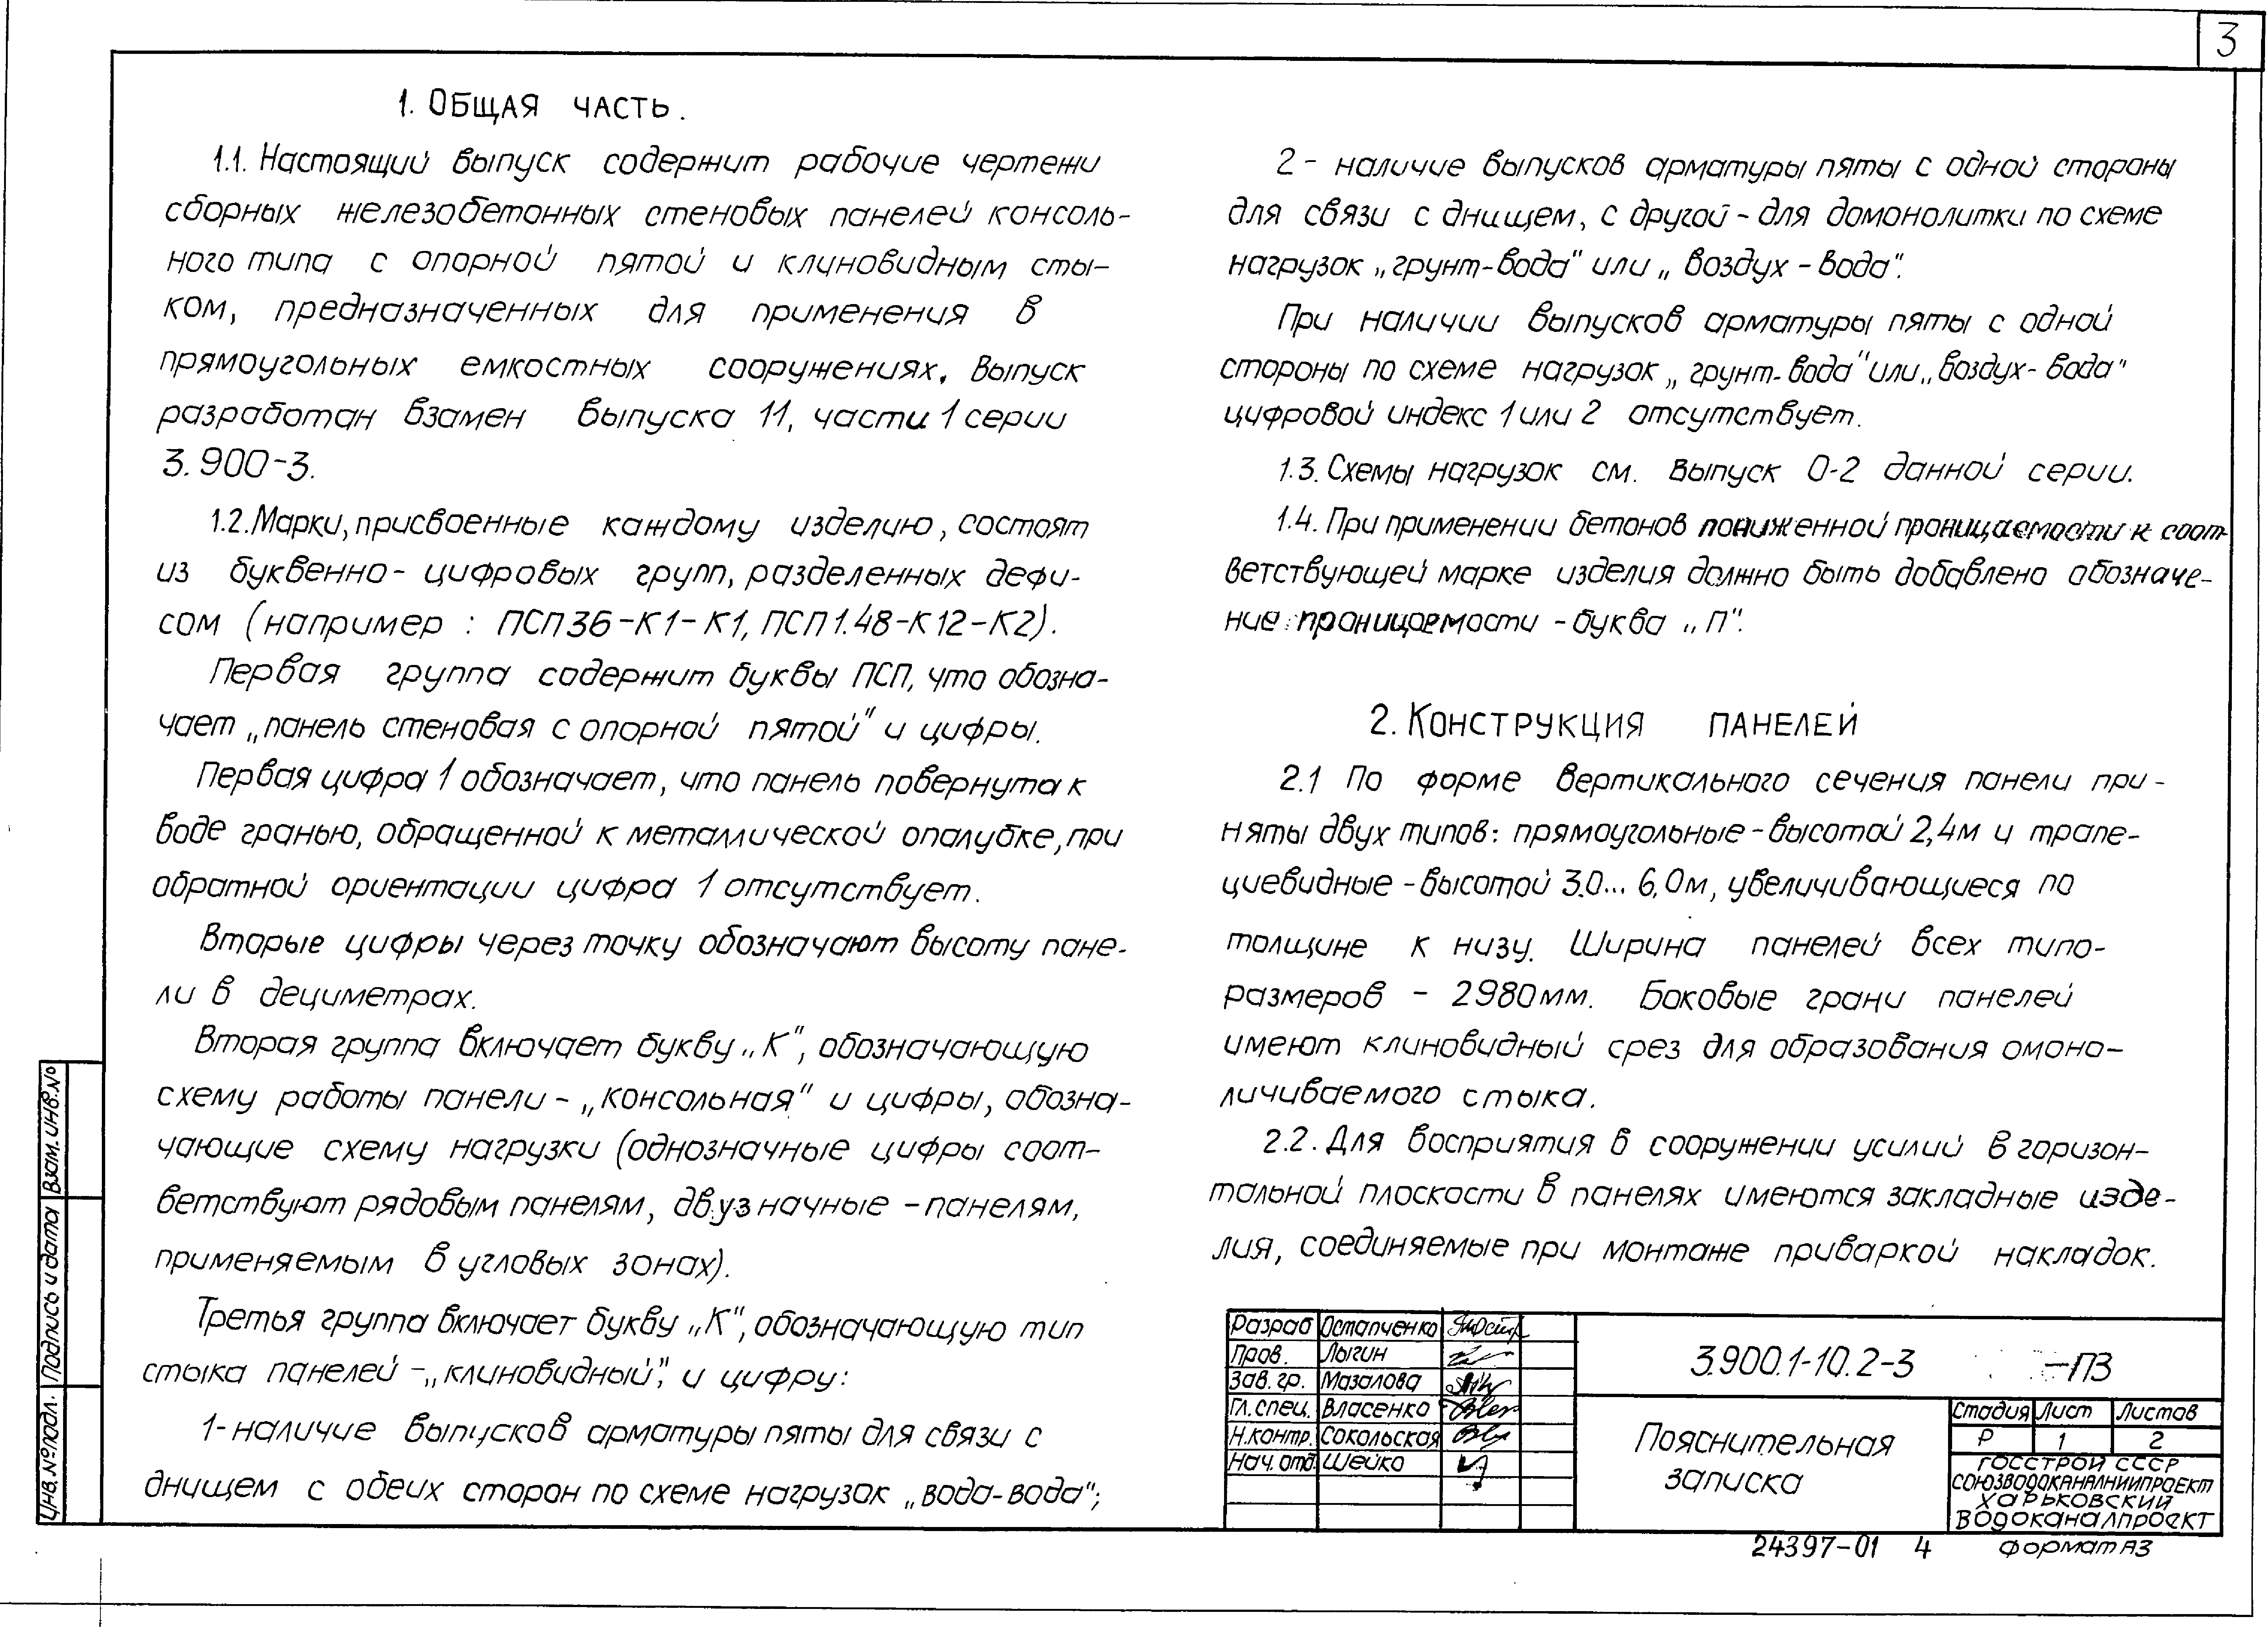 3
1. Общая часть.
1.1. Настоящий выпуск содержит рабочие чертежи
сборных железобетонных стеновых панелей консоль-
ного типа с опорной пятой и клиновидным сты-
ком, предназначенных для применения в
прямоугольных емкостных сооружениях. Выпуск
разработан взамен выпуска 11, части 1 серии
3.900-3.
1.2. Марки, присвоенные каждому изделию, состоят
из буквенно-цифровых групп, разделенных дефи-
сом (например: ПСП36-К1-К1, ПСП1.48-К12-К2).
Первая группа содержит буквы ПСП, что обозна-
чает „панель стеновая с опорной пятой" и цифры.
Первая цифра 1 обозначает, что панель повернута к
воде гранью, обращенной к металлической опалубке, при
обратной ориентации цифра 1 отсутствует.
Вторые цифры через точку обозначают высоту пане-
ли в дециметрах.
Вторая группа включает букву „К", обозначающую
схему работы панели - „консольная" и цифры, обозна-
чающие схему нагрузки (однозначные цифры соот-
ветствуют рядовым панелям, двузначные - панелям,
применяемым в угловых зонах).
Третья группа включает букву „К", обозначающую тип
стыка панелей - „клиновидный", и цифру:
1- наличие выпусков арматуры пяты для связи с
днищем с обеих сторон по схеме нагрузок „вода-вода";
2 - наличие выпусков арматуры пяты с одной стороны
для связи с днищем, с другой - для домонолитки по схеме
нагрузок „грунт-вода" или „воздух-вода".
При наличии выпусков арматуры пяты с одной
стороны по схеме нагрузок „грунт-вода" или „воздух-вода"
цифровой индекс 1 или 2 отсутствует.
1.3. Схемы нагрузок см. выпуск 0-2 данной серии.
1.4. При применении бетонов пониженной проницаемости к соот-
ветствующей марке изделия должно быть добавлено обозначе-
ние проницаемости - буква „П".
2. Конструкция панелей
2.1 По форме вертикального сечения панели при-
няты двух типов: прямоугольные - высотой 2,4м и трапе-
циевидные - высотой 3.0... 6,0м, увеличивающиеся по
толщине к низу. Ширина панелей всех типо-
размеров - 2980мм. Боковые грани панелей
имеют клиновидный срез для образования омоно-
личиваемого стыка.
2.2. Для восприятия в сооружении усилий в горизон-
тальной плоскости в панелях имеются закладные изде-
лия, соединяемые при монтаже приваркой накладок.
Взам. инв. №
Подпись и дата
Инв. № подл.
Разраб Остапченко
Пров. Лыгин
Зав. гр. Мазалова
Гл. спец. Власенко
Н.контр. Сокольская
Нач. отд. Шейко
3.900.1-10.2-3 -ПЗ
Пояснительная
записка
Стадия Лист Листов
Р 1 2
ГОССТРОЙ СССР
СОЮЗВОДОКАНАЛНИИПРОЕКТ
Харьковский
Водоканалпроект
24397-01 4 Формат А3